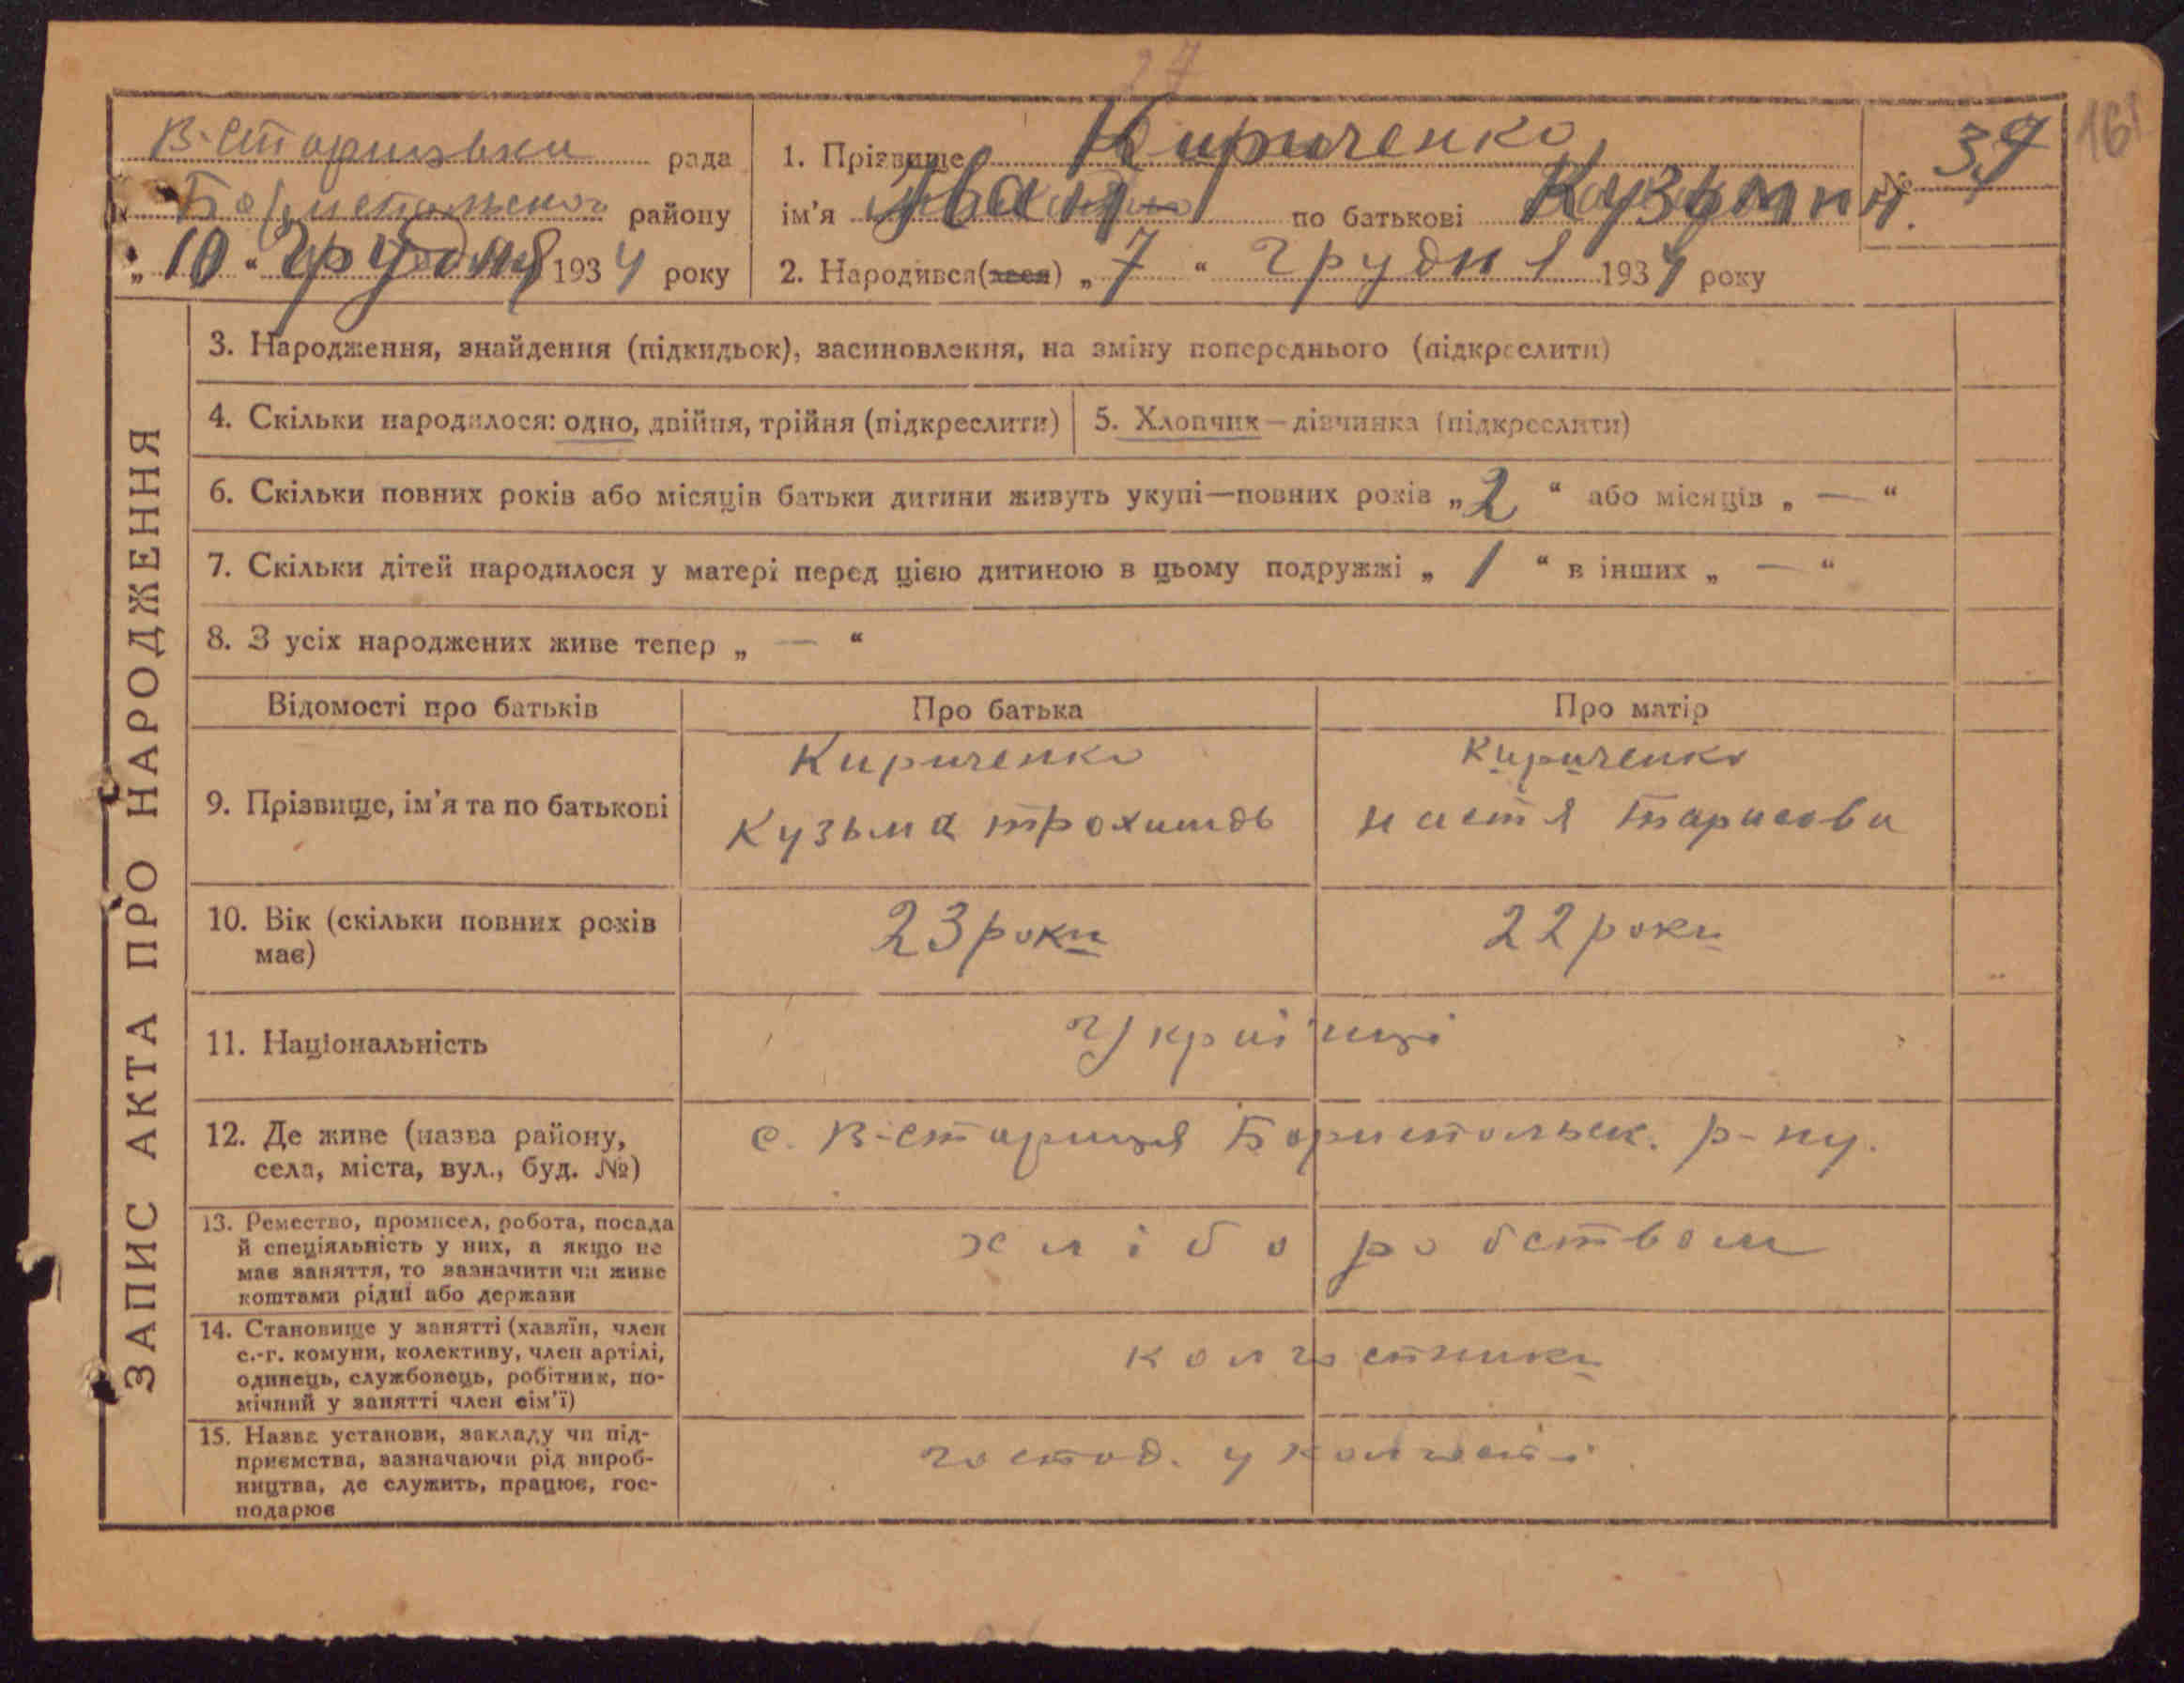 27
161
В-Старицька рада
Бориспольского району
„ 10 “ Грудня 1934 року
1. Прізвище Кириченко
ім'я Іван по батькові Кузьмич.
№ 37
2. Народився(лася) „ 7 “ грудня 1934 року
ЗАПИС АКТА ПРО НАРОДЖЕННЯ
3. Народження, знайдення (підкидьок), засиновлення, на зміну попереднього (підкреслити)
4. Скільки народилося: одно, двійня, трійня (підкреслити)
5. Хлопчик—дівчинка (підкреслити)
6. Скільки повних років або місяців батьки дитини живуть укупі—повних років „ 2 “ або місяців „ — “
7. Скільки дітей народилося у матері перед цією дитиною в цьому подружжі „ 1 “ в інших „ — “
8. З усіх народжених живе тепер „ — “
Відомості про батьків
Про батька
Про матір
9. Прізвище, ім'я та по батькові
Кириченко
Кузьма
Кириченко
Настя Тарасова
10. Вік (скільки повних років
має)
23 роки
22 роки
11. Національність
Українці
12. Де живе (назва району,
села, міста, вул., буд. №)
с. В-Стариця Бориспольськ. р-ну.
13. Ремество, промисел, робота, посада
й спеціяльність у них, а якщо не
має заняття, то зазначити чи живе
коштами рідні або держави
хліборобством
14. Становище у занятті (хазяїн, член
с.-г. комуни, колективу, член артілі,
одинець, службовець, робітник, по-
мічний у занятті член сім'ї)
колгоспники
15. Назва установи, закладу чи під-
приємства, зазначаючи рід вироб-
ництва, де служить, працює, гос-
подарює
господ. у колгоспі